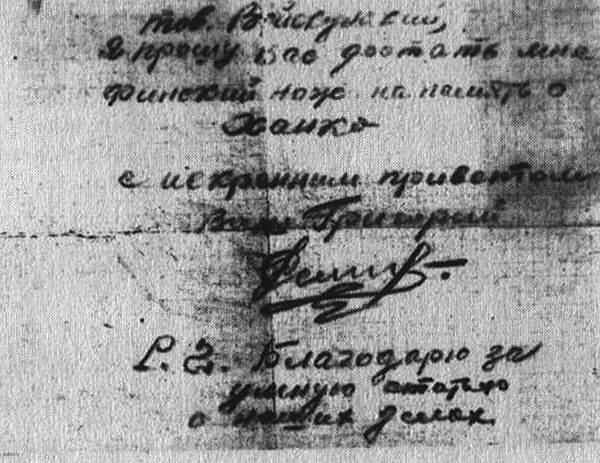 тов. Войскунский,
Я прошу Вас достать мне
финский нож на память о
Ханко
с искренним приветом
Ваш Григорий
P. S. Благодарю за
умную статью
о наших делах